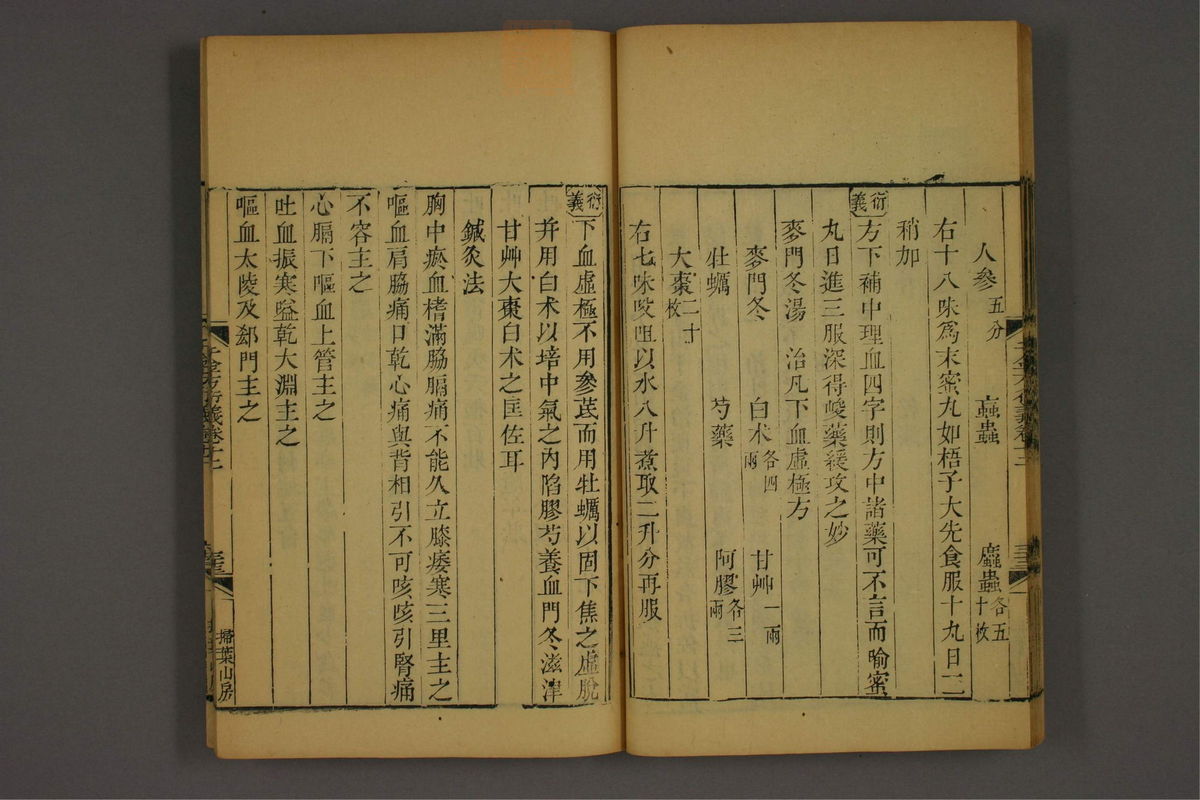 人參五分　䖟蟲　䗪蟲各五十枚
右十八味爲末蜜丸如梧子大先食服十丸日二
稍加
衍義方下補中理血四字則方中諸藥可不言而喻蜜
丸日進三服深得峻藥緩攻之妙
麥門冬湯　治凡下血虛極方
麥門冬　白术各四兩　甘艸一兩
牡蠣　芍藥　阿膠各三兩
大棗二十枚
右七味㕮咀以水八升煮取二升分再服
衍義下血虛極不用參芪而用牡蠣以固下焦之虛脫
并用白术以培中氣之內陷膠芍養血門冬滋津
甘艸大棗白术之匡佐耳
鍼灸法
胸中瘀血榰滿脇膈痛不能久立膝痿寒三里主之
嘔血肩脇痛口乾心痛與背相引不可咳咳引腎痛
不容主之
心膈下嘔血上管主之
吐血振寒嗌乾大淵主之
嘔血太陵及郄門主之
掃葉山房